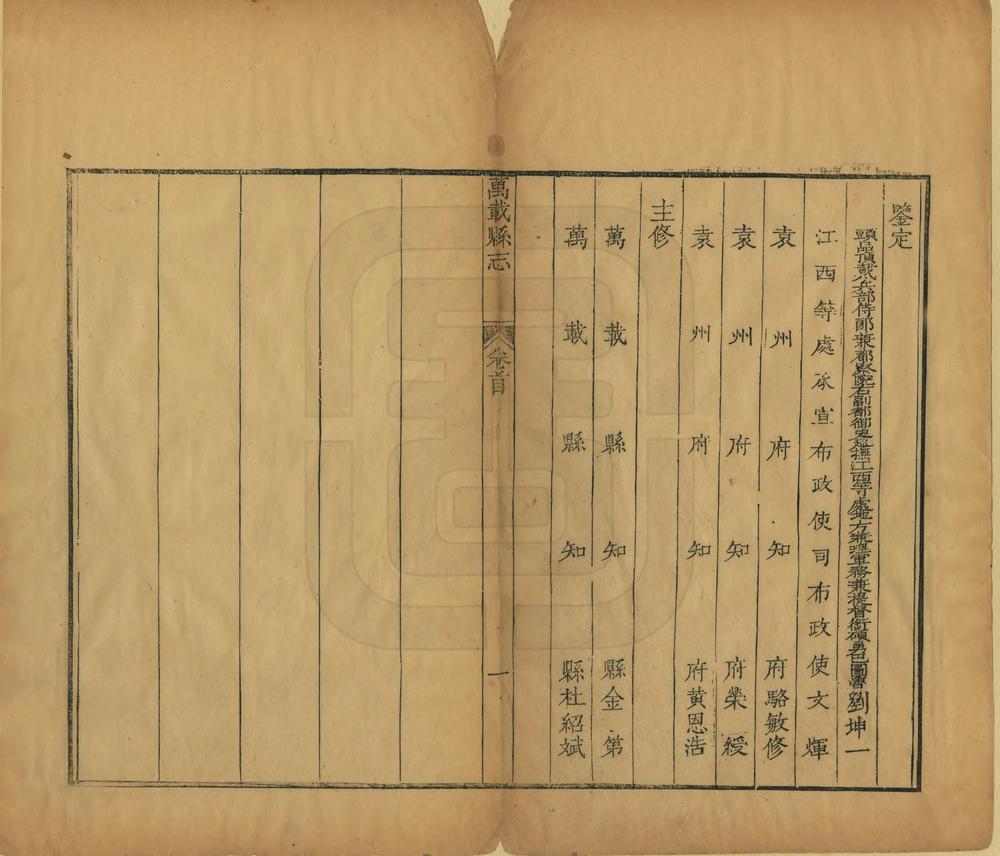 鑒定
頭品頂戴兵部侍郎兼都察院右副都御史巡撫江西等處地方兼理軍務兼提督銜碩勇巴圖魯劉坤一
江西等處承宣布政使司布政使文輝
袁州府知府駱敏修
袁州府知府榮綬
袁州府知府黄恩浩
主修
萬載縣知縣金第
萬載縣知縣杜紹斌
萬載縣志
卷首
一